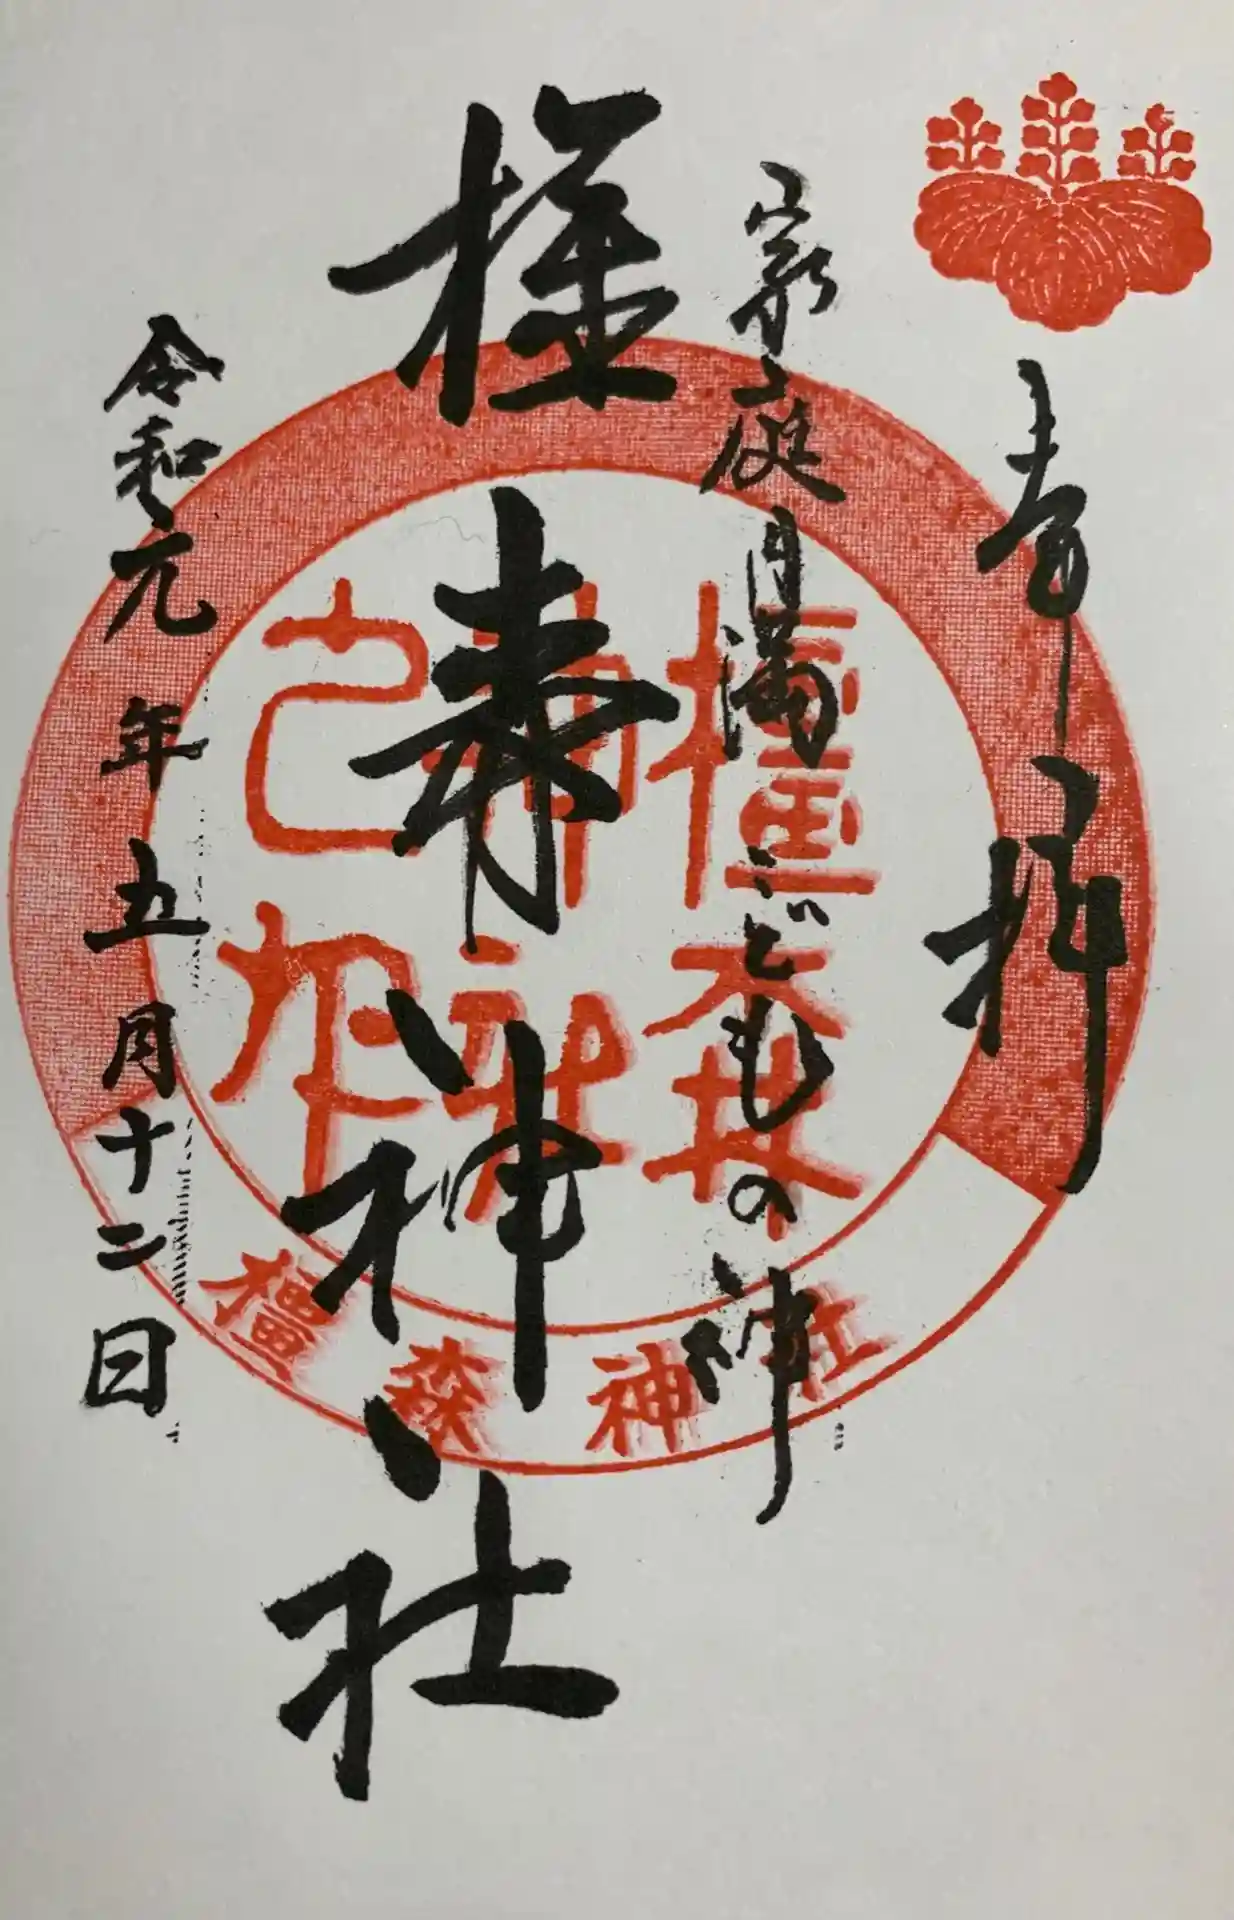 奉拝
家庭円満こどもの神
橿森神社
令和元年五月十二日
橿森
神社
橿森神社